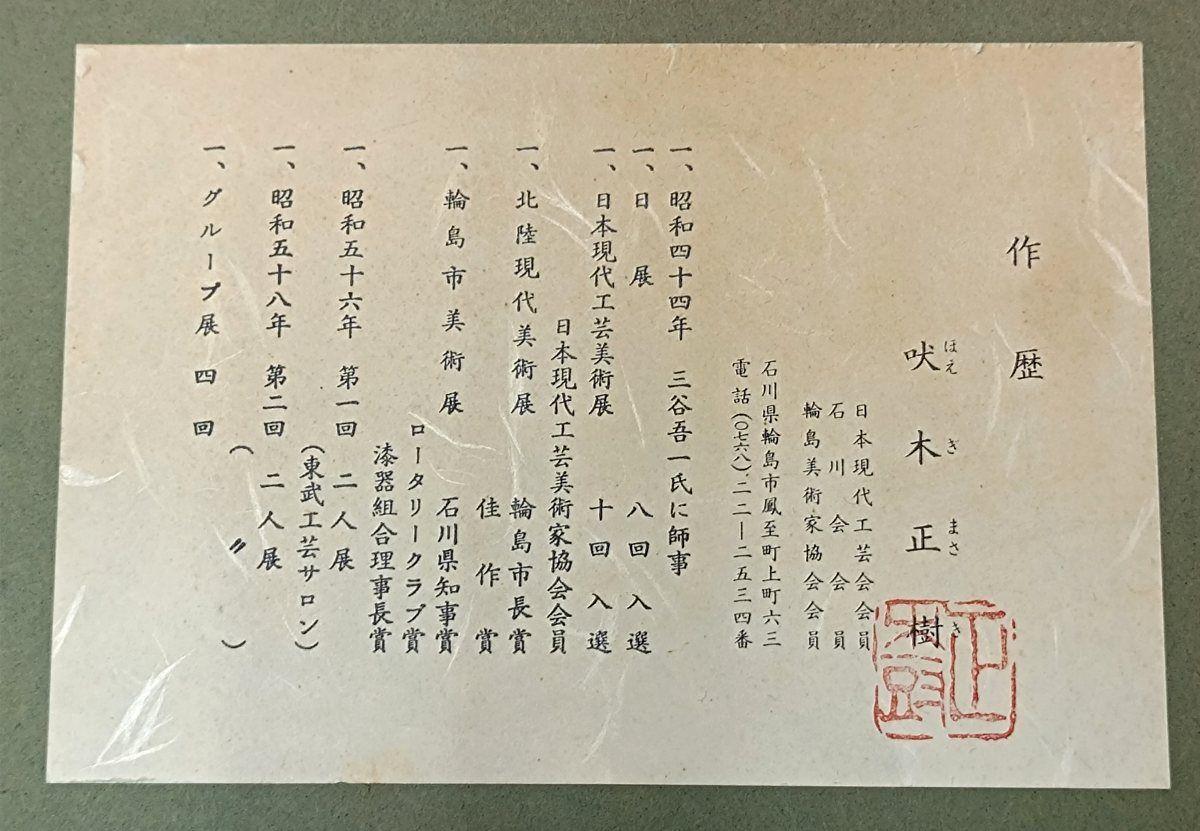 作歴
吠木正樹
ほえぎまさき
日本現代工芸会会員
石川会会員
輪島美術家協会会員
石川県輪島市鳳至町上町六三
電話(〇七六八)二二―二五三四番
一、昭和四十四年 三谷吾一氏に師事
一、日展 八回入選
一、日本現代工芸美術展 十回入選
日本現代工芸美術家協会会員
一、北陸現代美術展 輪島市長賞
佳作賞
一、輪島市美術展 石川県知事賞
ロータリークラブ賞
漆器組合理事長賞
一、昭和五十六年 第一回 二人展
(東武工芸サロン)
一、昭和五十八年 第二回 二人展
( 〃 )
一、グループ展 四回
正樹